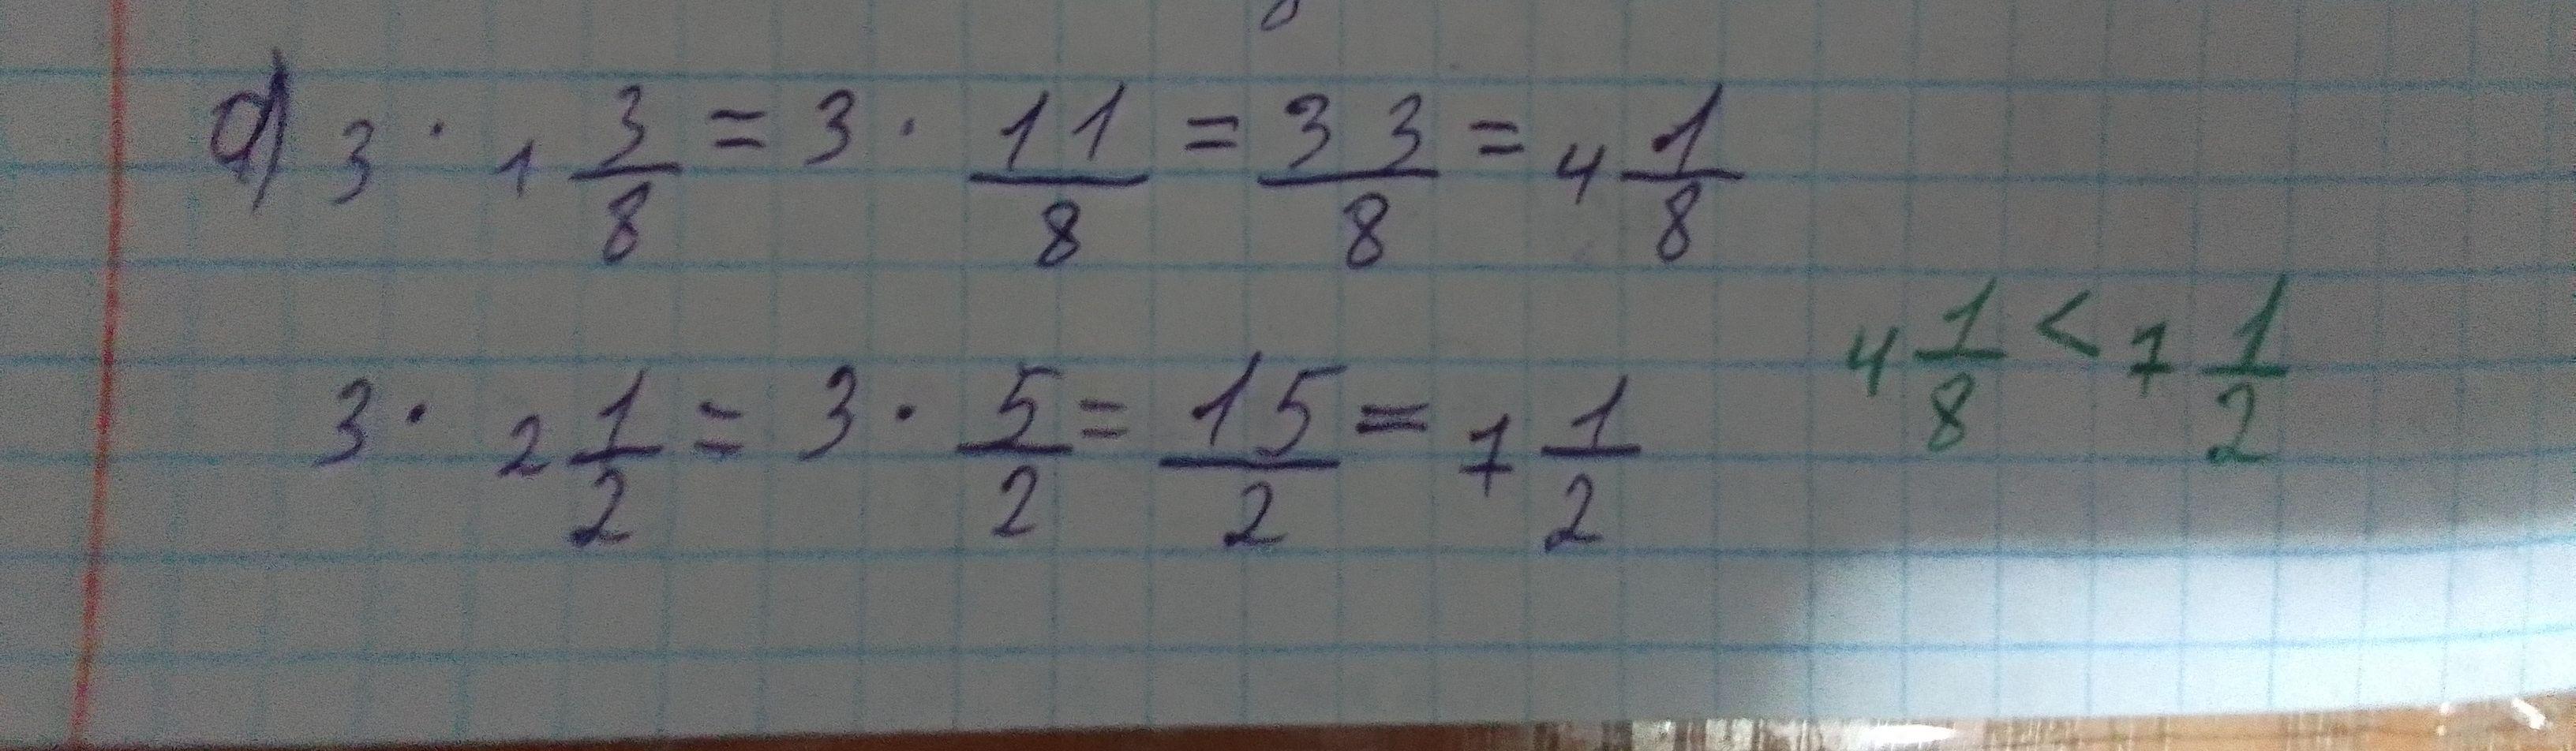 a) 3 · 1 3/8 = 3 · 11/8 = 33/8 = 4 1/8
3 · 2 1/2 = 3 · 5/2 = 15/2 = 7 1/2
4 1/8 < 7 1/2